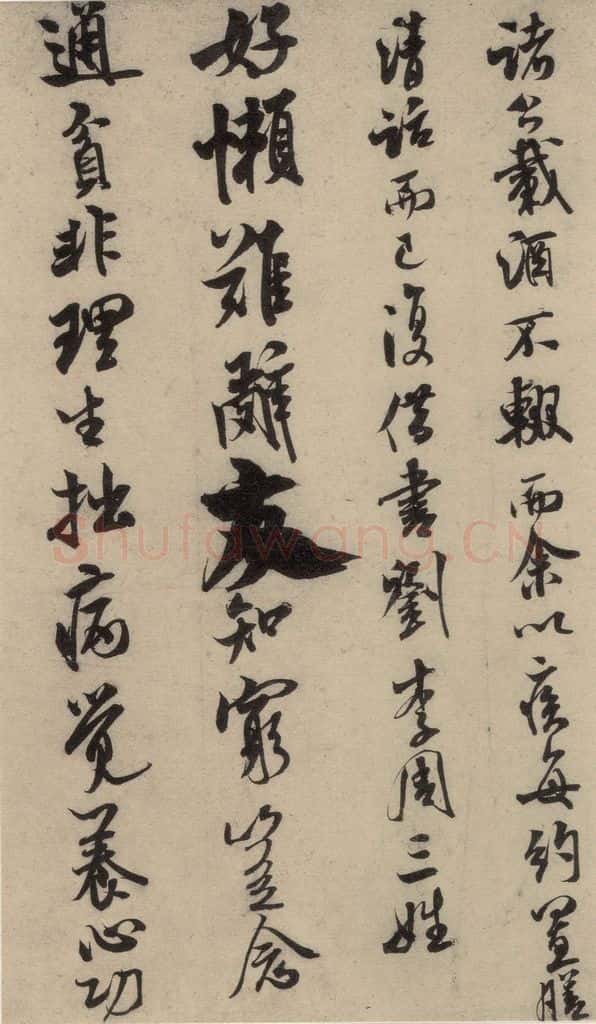 諸公載酒不輟而余以疾每約置膳
清話而已復借書劉李周三姓
好懶難辭友知窮豈念
通貧非理生拙病覺養心功
Shufawang.CN